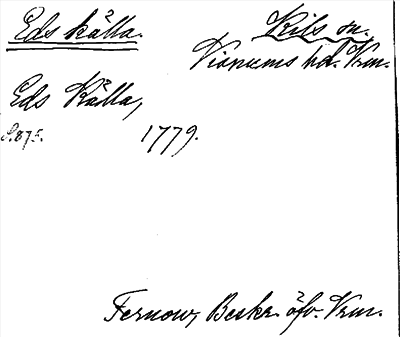 Eds källa.
Kils sn.
Visnums hd. Vrm.
Eds Källa,
S. 875. 1779.
Fernow, Beskr. öfv. Vrm.